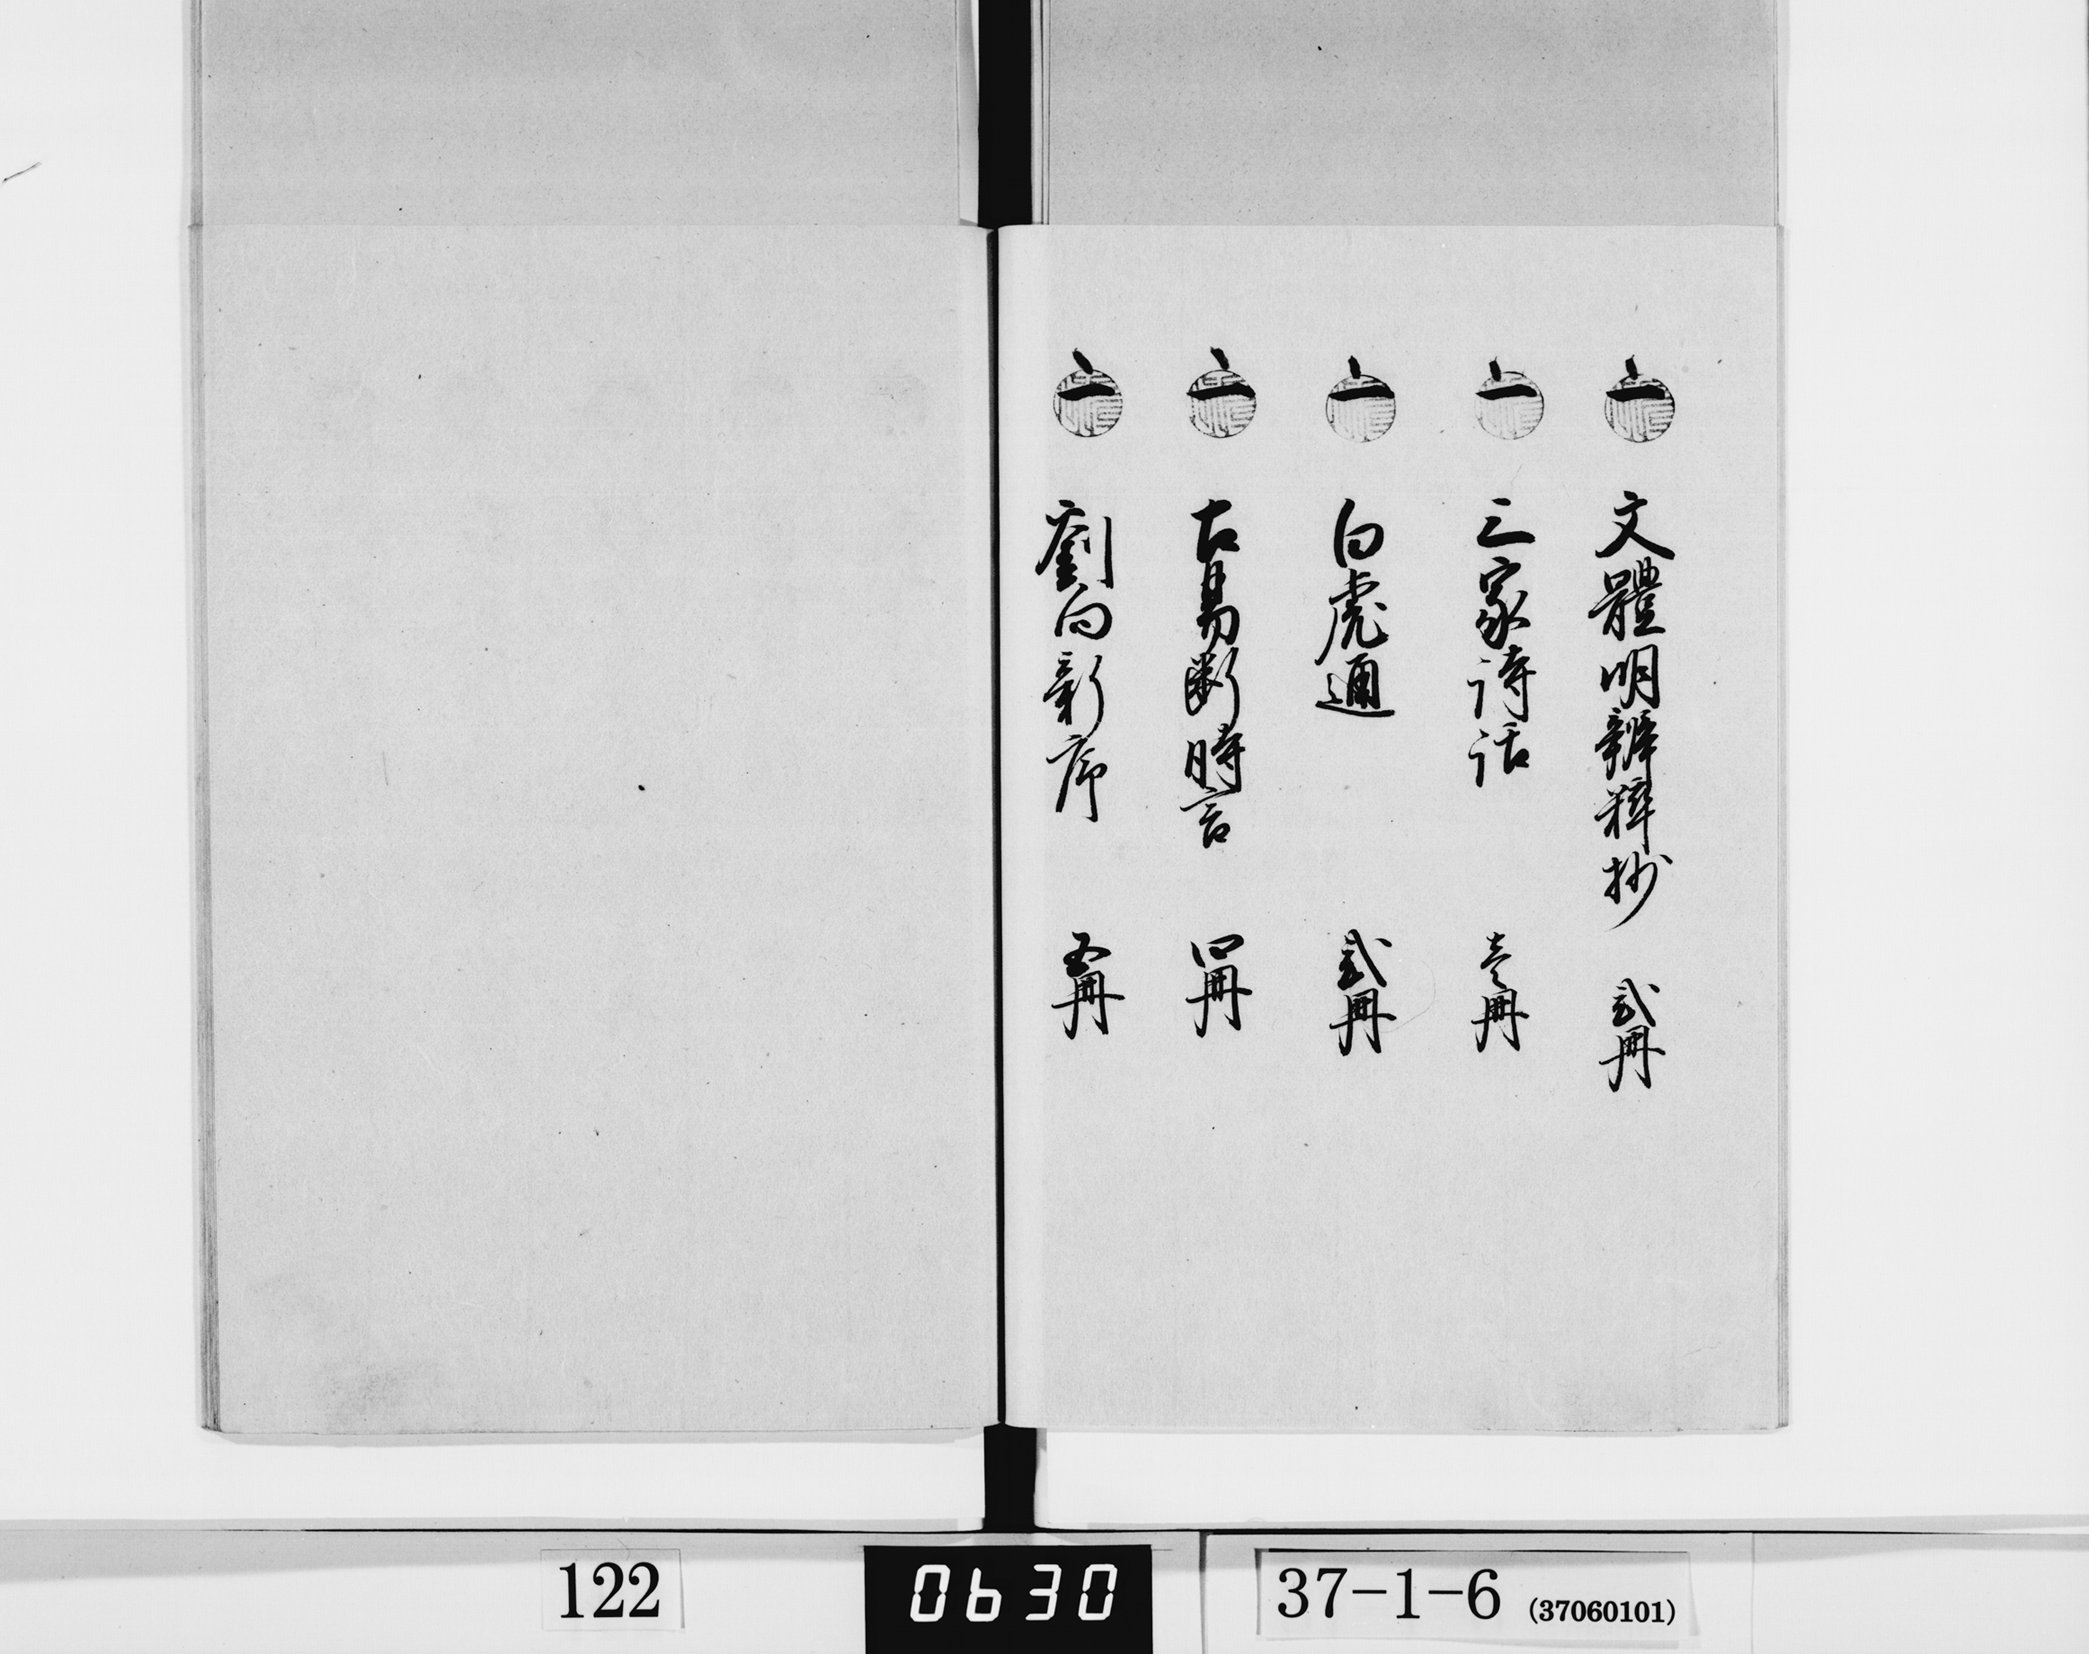 一 文體明辨粹抄 弐冊
一 三家詩話 壱冊
一 白虎通 弐冊
一 古易断時言 四冊
一 劉向新序 五冊
122
0630
37-1-6 (37060101)